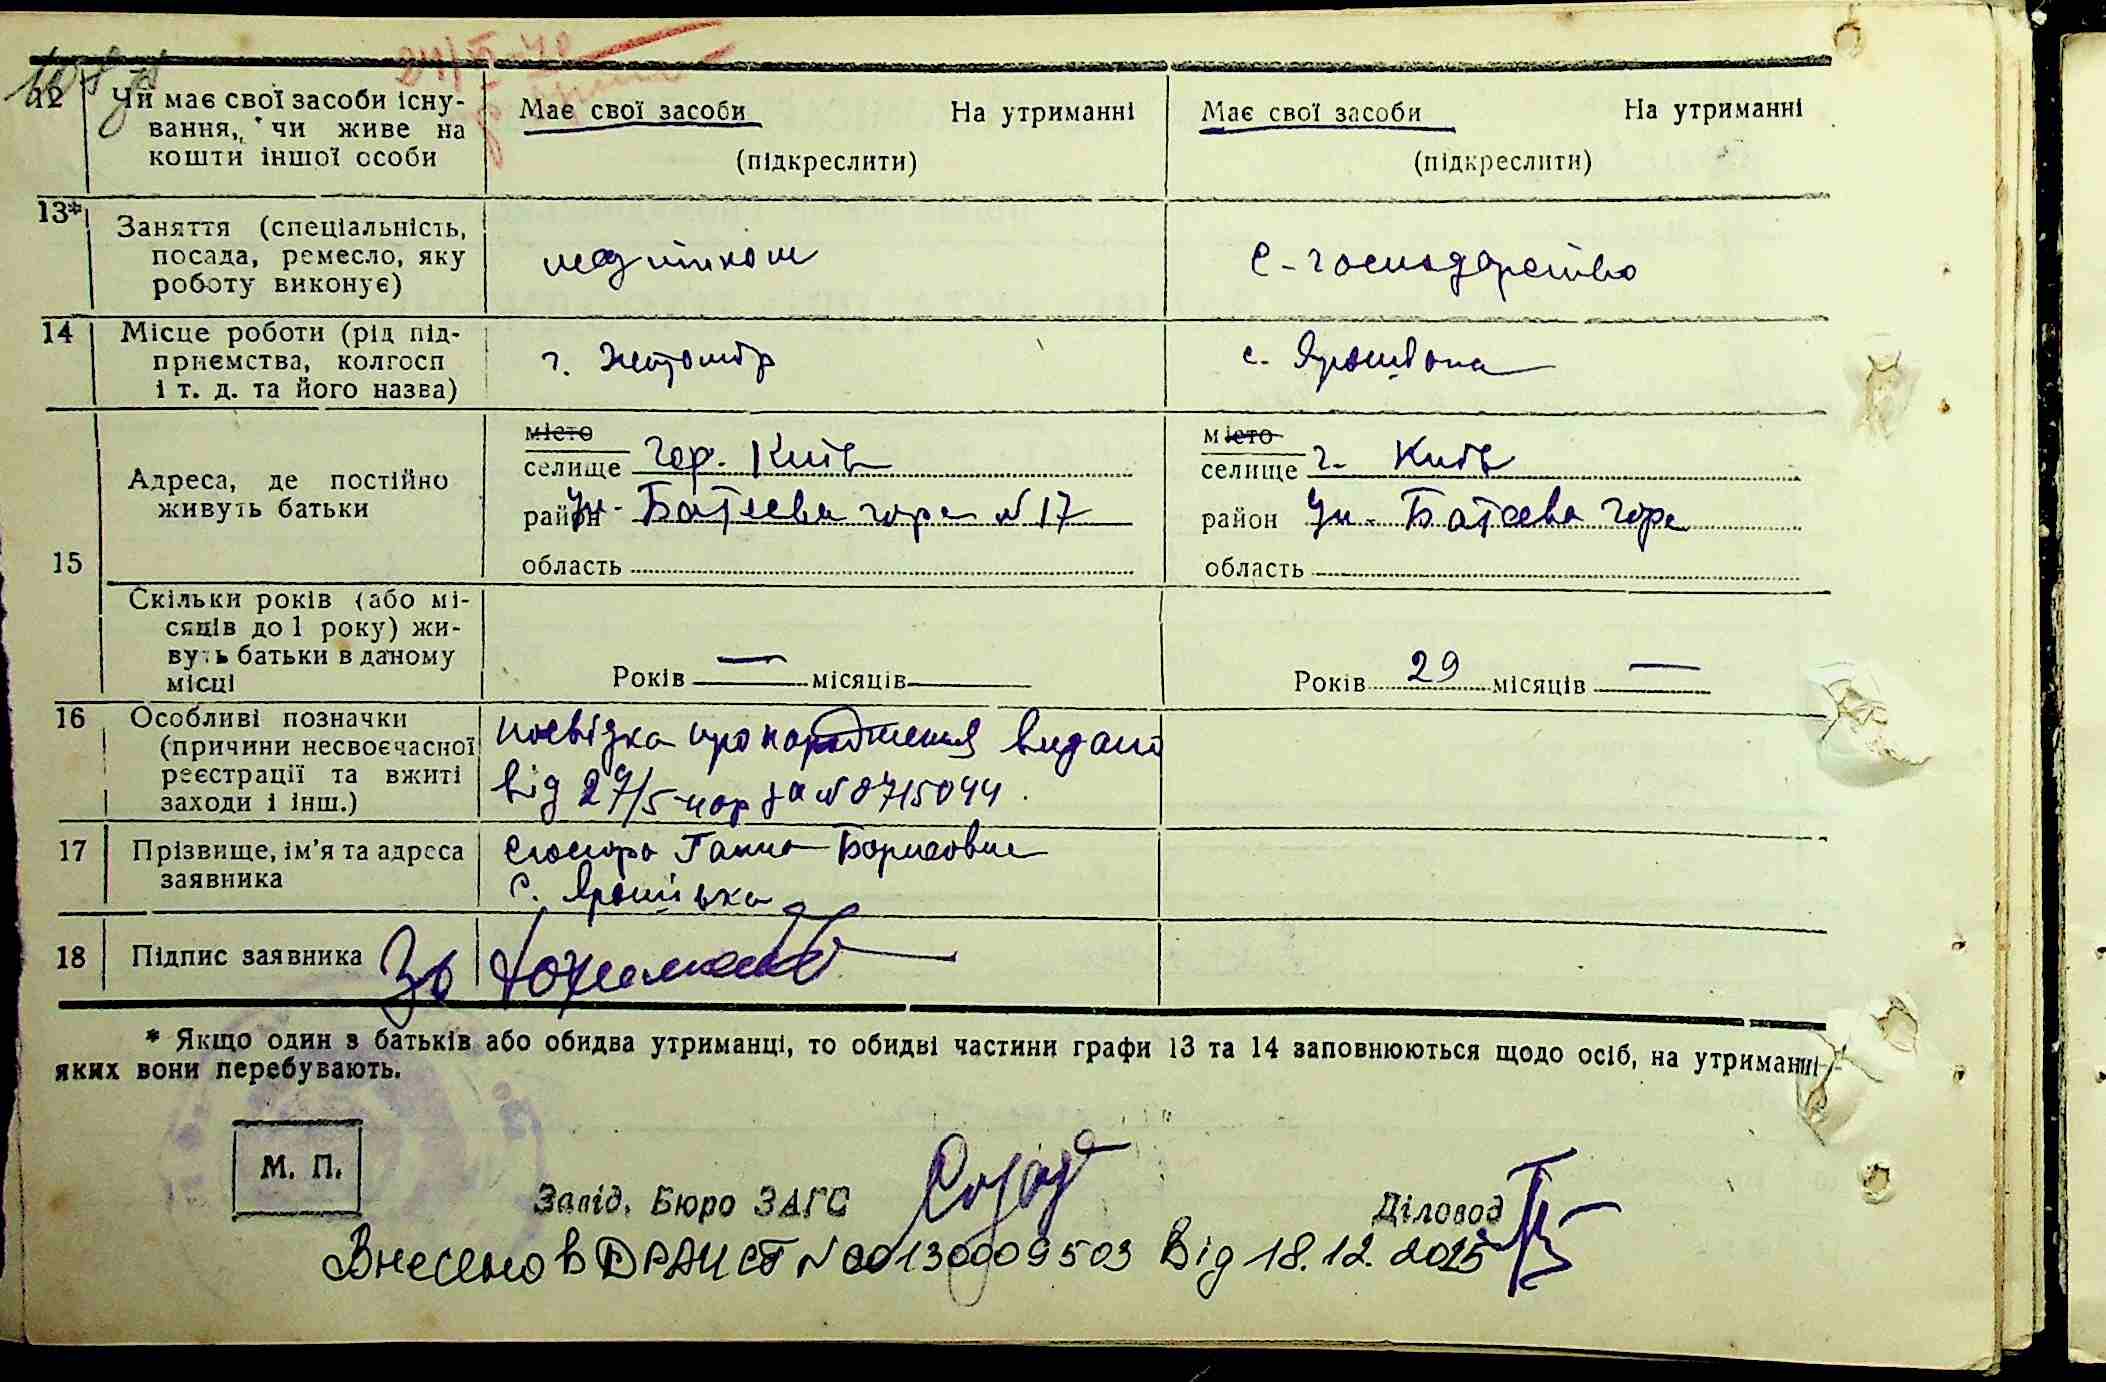 24/VI-70
12 Чи має свої засоби існу-
вання, чи живе на
кошти іншої особи
Має свої засоби На утриманні
(підкреслити)
Має свої засоби На утриманні
(підкреслити)
13* Заняття (спеціальність,
посада, ремесло, яку
роботу виконує)
с-господарство
14 Місце роботи (рід під-
приємства, колгосп
і т. д. та його назва)
г. Житомір
с. Ярошівка
15 Адреса, де постійно
живуть батьки
місто
селище гор. Київ
район Ул. Батиева гора №17
область
місто
селище г. Київ
район Ул. Батиева гора
область
Скільки років (або мі-
сяців до 1 року) жи-
вуть батьки в даному
місці
Років — місяців
Років 29 місяців —
16 Особливі позначки
(причини несвоєчасної
реєстрації та вжиті
заходи і інш.)
посвідка про народження видана
від 29/5 за № 0715044
17 Прізвище, ім'я та адреса
заявника
Ганна Борисовна
с. Ярошівка
18 Підпис заявника За
* Якщо один з батьків або обидва утриманці, то обидві частини графи 13 та 14 заповнюються щодо осіб, на утриманні
яких вони перебувають.
М. П.
Завід. Бюро ЗАГС
Діловод
Внесено в ДРАЦСГ № 00130009503 від 18.12.2025